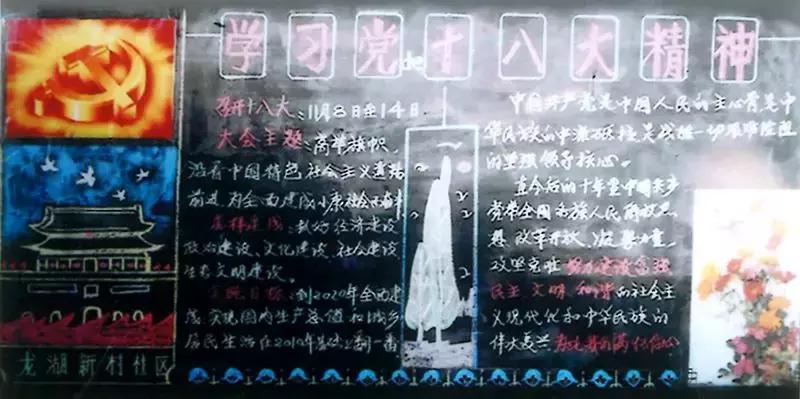 学习党de十八大精神
召开十八大：11月8日至14日
大会主题：高举旗帜，
沿着中国特色社会主义道路
前进 为全面建成小康社会而奋斗
怎样建成：
政治建设、文化建设、社会建设
生态文明建设。
实现目标：到2020年全面建
成 实现国内生产总值和城乡
居民生活在2010年基础上翻一番
中国共产党是中国人民的主心骨是中
华民族的中流砥柱是战胜一切艰难险阻
的坚强领导核心。
在今后的十年里中国共产
党带全国各族人民解放思
想 改革开放、凝聚力量、
攻坚克难
民主 文明 和谐的社会主
义现代化和中华民族的
伟大复兴
龙湖新村社区